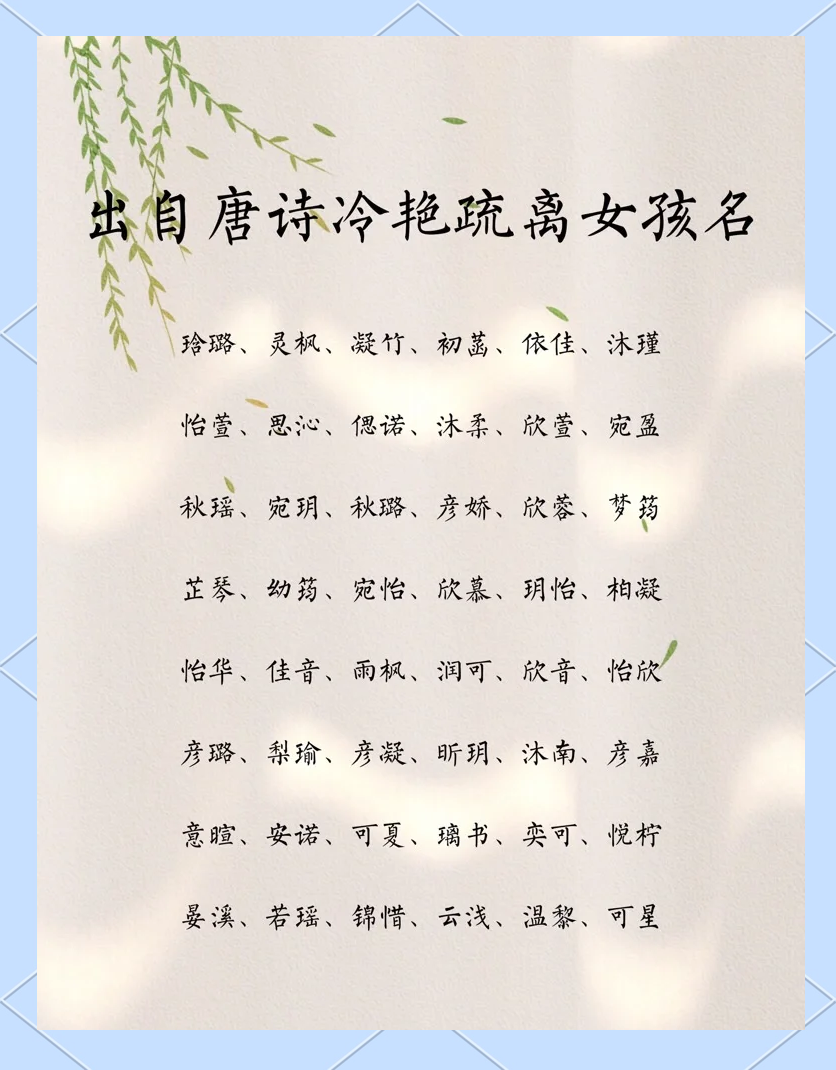 出自唐诗冷艳疏离女孩名
琀璐、灵枫、凝竹、初菡、依佳、沐瑾
怡萱、思沁、偲诺、沐柔、欣萱、宛盈
秋瑶、宛玥、秋璐、彦娇、欣蓉、梦筠
芷琴、幼筠、宛怡、欣慕、玥怡、柏凝
怡华、佳音、雨枫、润可、欣音、怡欣
彦璐、梨瑜、彦凝、昕玥、沐南、彦嘉
意暄、安诺、可夏、璃书、奕可、悦柠
晏溪、若瑶、锦惜、云浅、温黎、可星